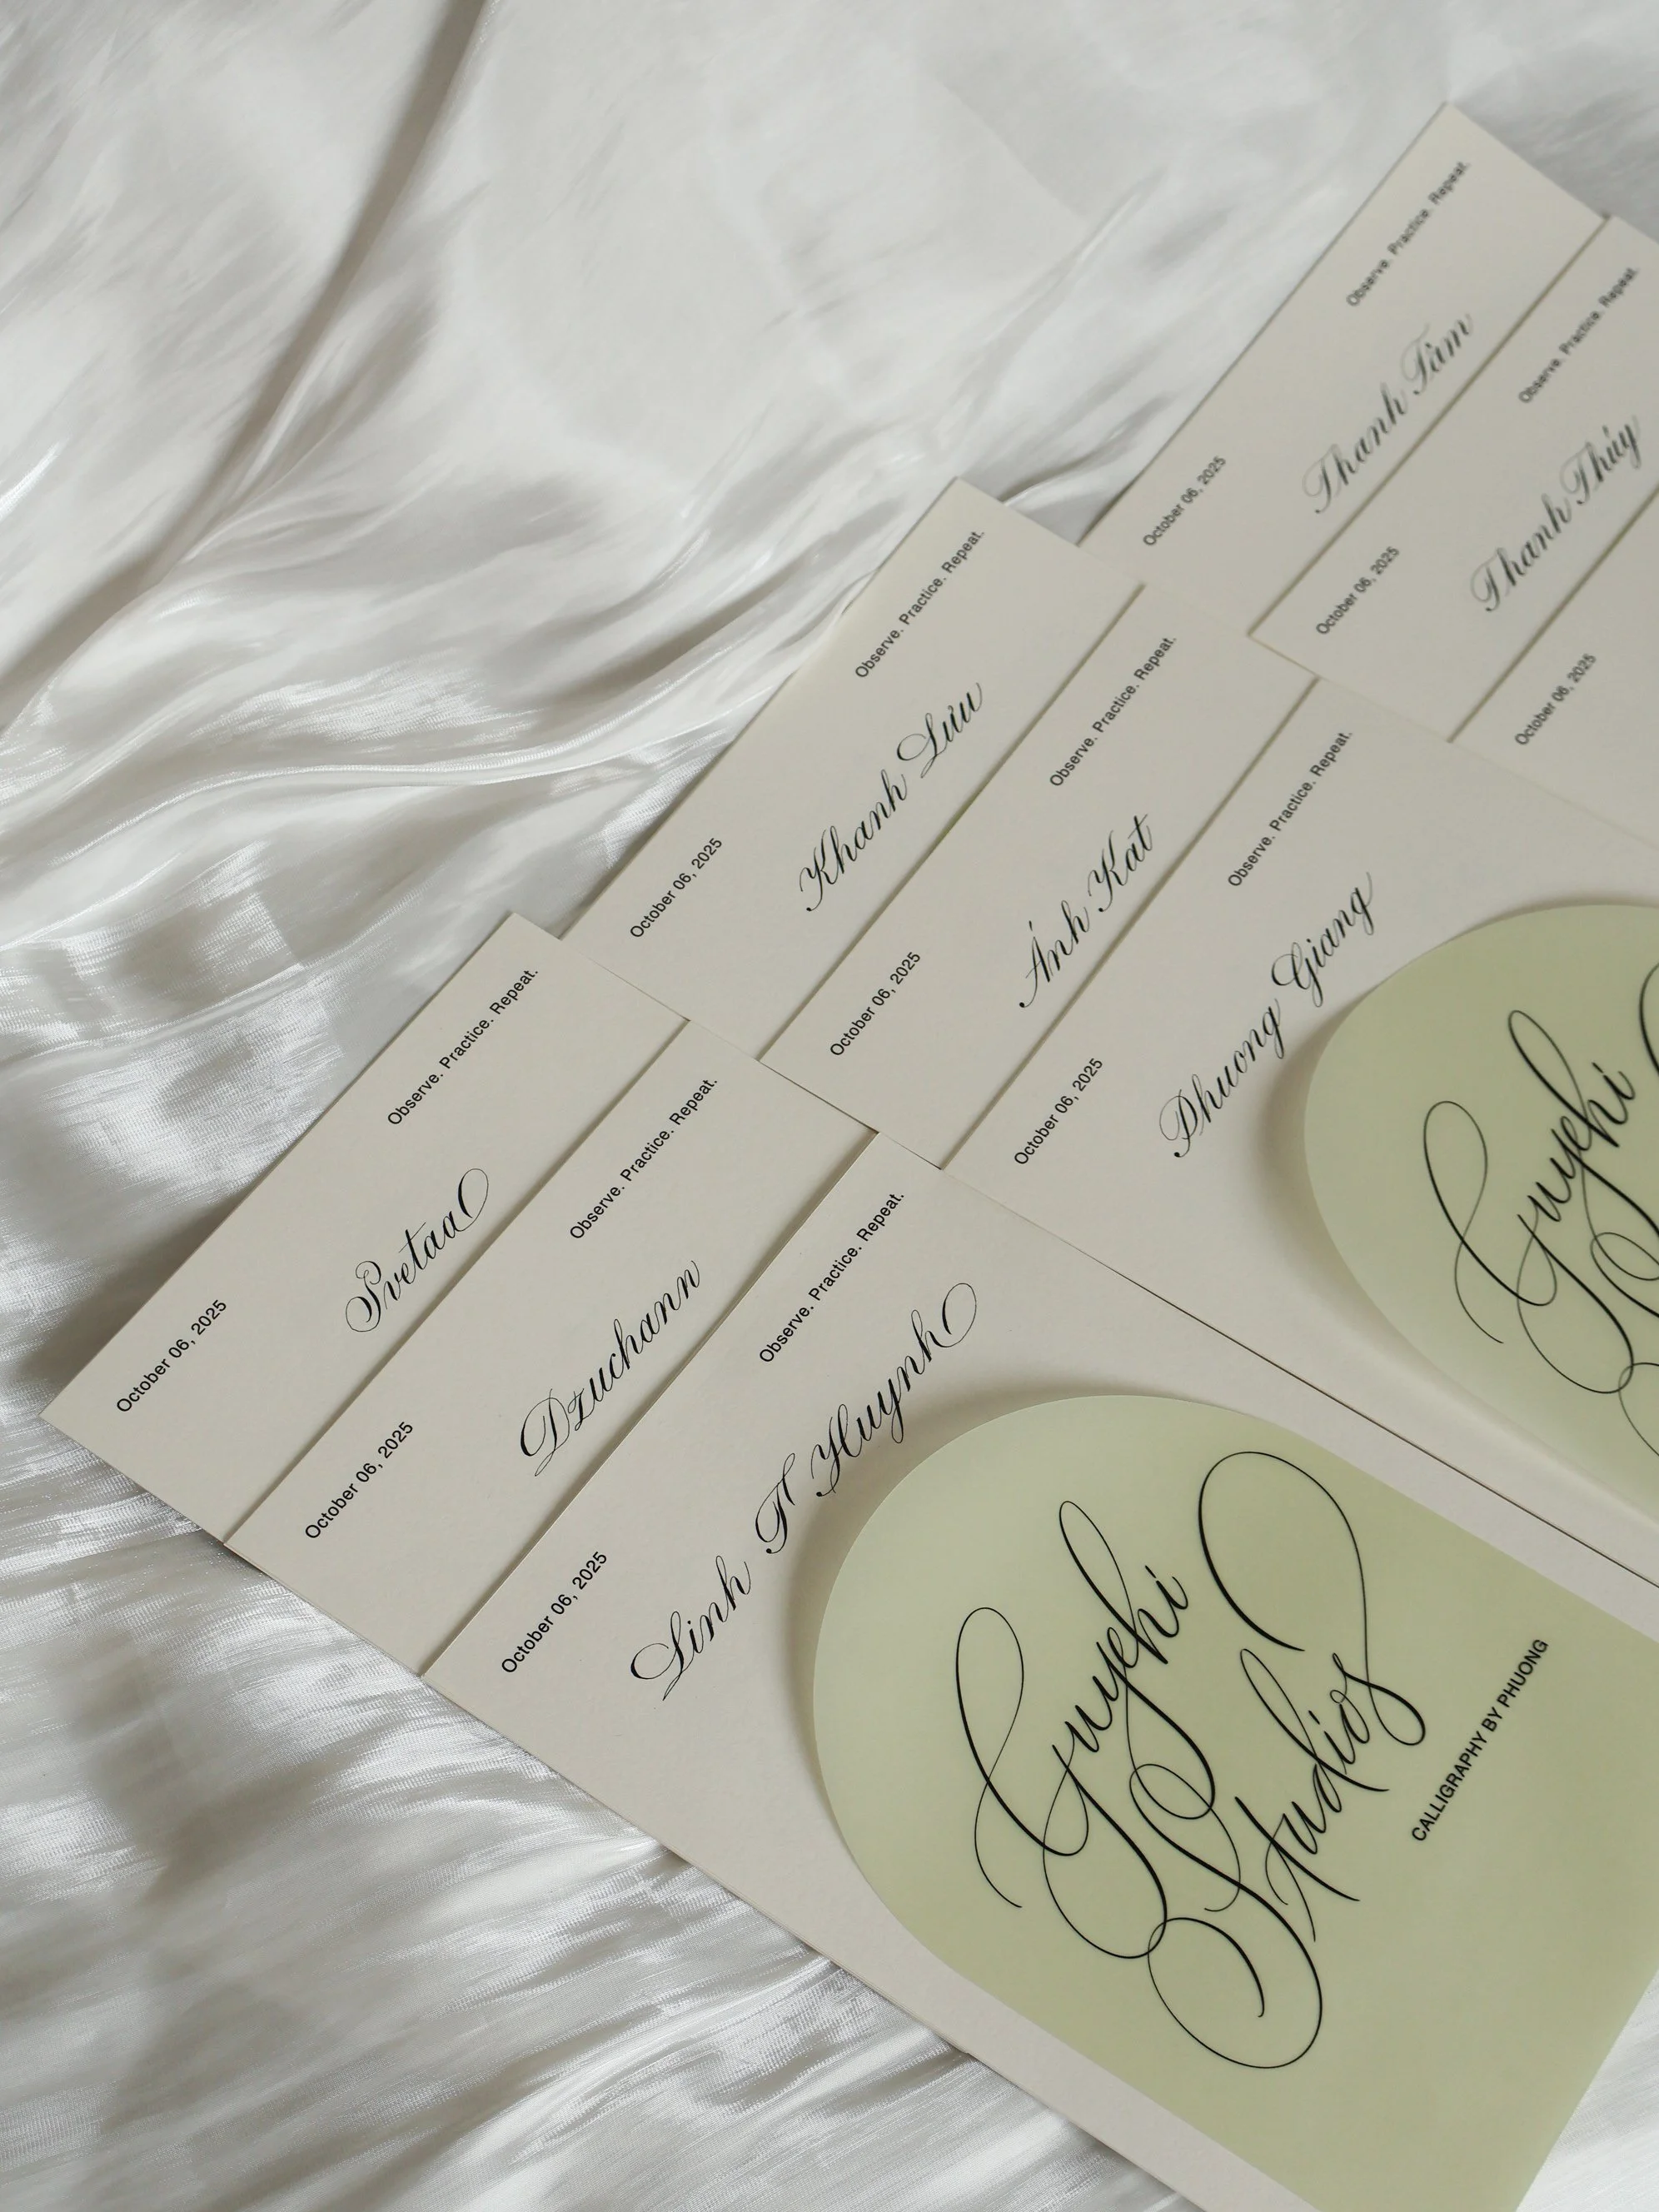 Observe. Practice. Repeat.
Thanh Tâm
October 06, 2025
Observe. Practice. Repeat.
Thanh Thúy
October 06, 2025
October 06, 2025
Observe. Practice. Repeat.
Khanh Lưu
October 06, 2025
Observe. Practice. Repeat.
Ánh Kat
October 06, 2025
Observe. Practice. Repeat.
Phuong Giang
October 06, 2025
Guyehi
Observe. Practice. Repeat.
Svetaa
October 06, 2025
Observe. Practice. Repeat.
Dzuchann
October 06, 2025
Observe. Practice. Repeat.
Linh T Huynh
October 06, 2025
Guyehi
Studios
CALLIGRAPHY BY PHUONG